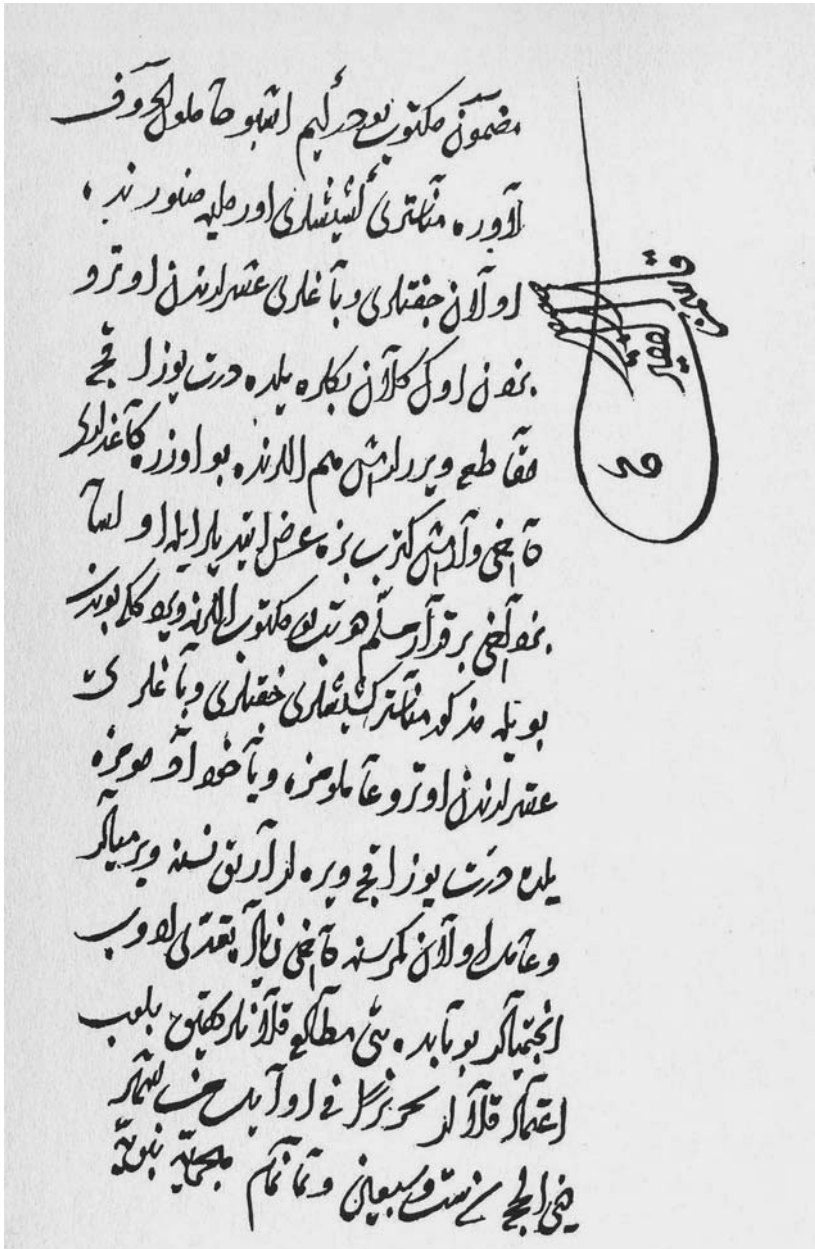 مضمون مكتوب بودركيم اشبو حاملو الحروف
لاوره مناستری كشیشلری اورمیه صنورنده
اولان جفتلری و باغلری عشرلرندن اوترو
بزدن اوك كلان بكلره یلده درت یوز اقچه
مقاطع ویررلرمش هم اللرنده بو اوزره كاغدلری
داخی وارمش كتورب بزه عرض ایتدیلر ایله اولسا
بزداخی برقرار مسلم دوتب بو مكتوب اللرینه ویردك كه بوندن
بویله مذكور مناستر كشیشلری جفتلری و باغلری
عشرلرندن اوترو عاملومزه و یاخود آدمومزه
یلده درت یوز اقچه ویره لر آرتق نسنه ویرمیالر
و عامل اولان كمسنه داخی زیاده تعدی ادوب
انجتمیالر بو بابده بتی مطالع قلانلر تحقیق بلوب
اعتماد قلالر تحریرا فی اوایل شهر
ذی الحجه سنه ست و سبعین و ثمانمایه
الفقیر